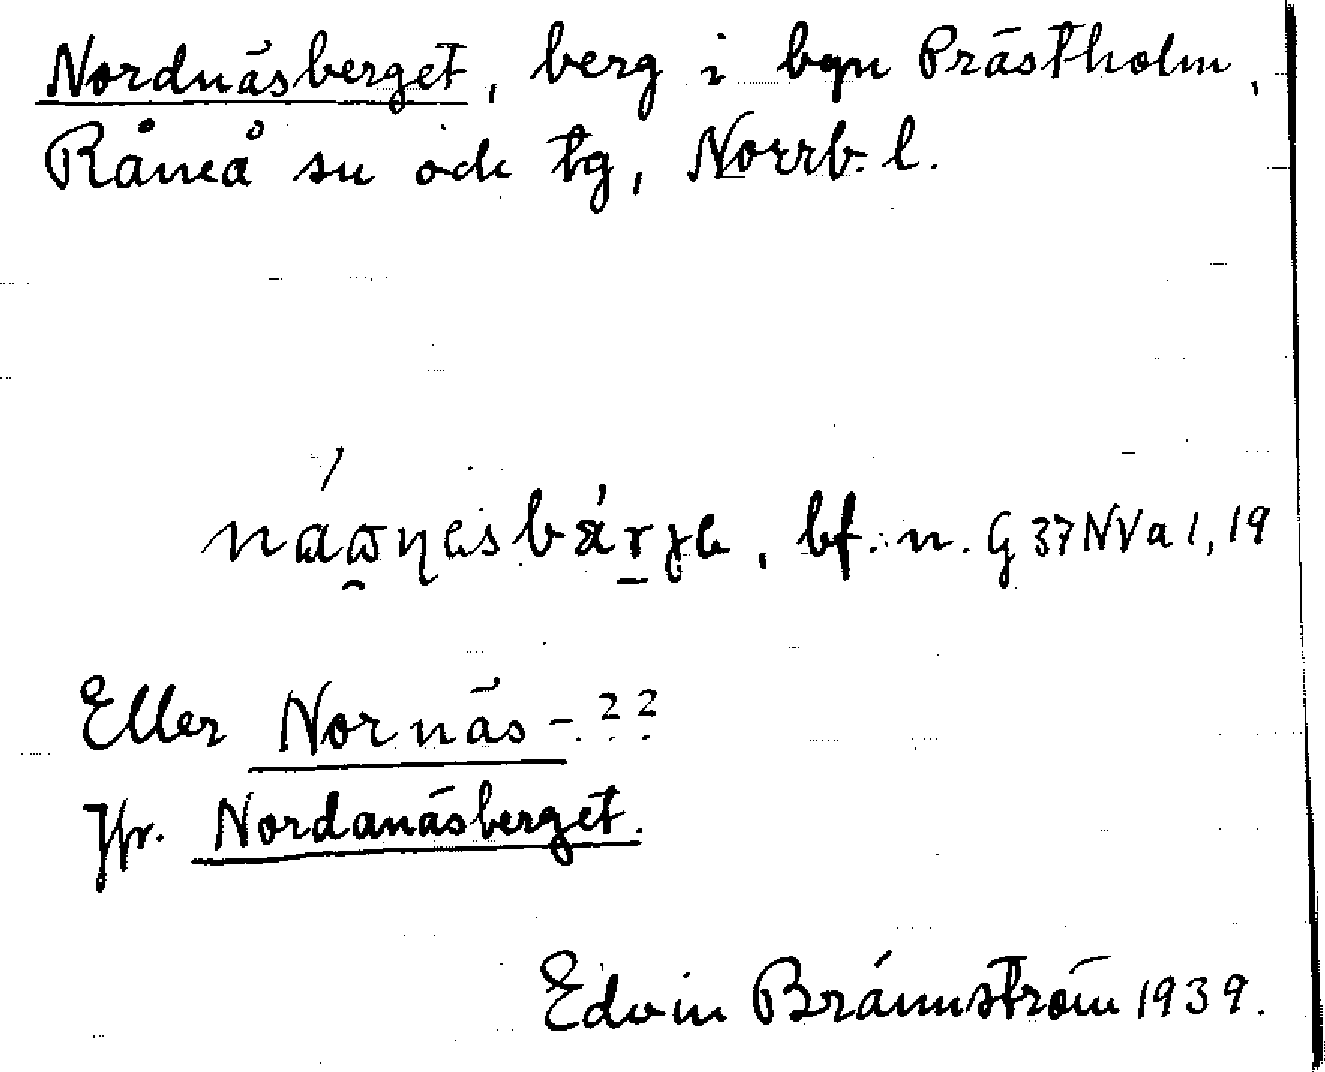 Nordnäsberget, berg i byn Prästholm,
Råneå sn och tg, Norrb. l.
bf. n. G 37 NVa 1, 19
Eller Nornäs- ??
Jfr. Nordanäsberget.
Edvin Brännström 1939.